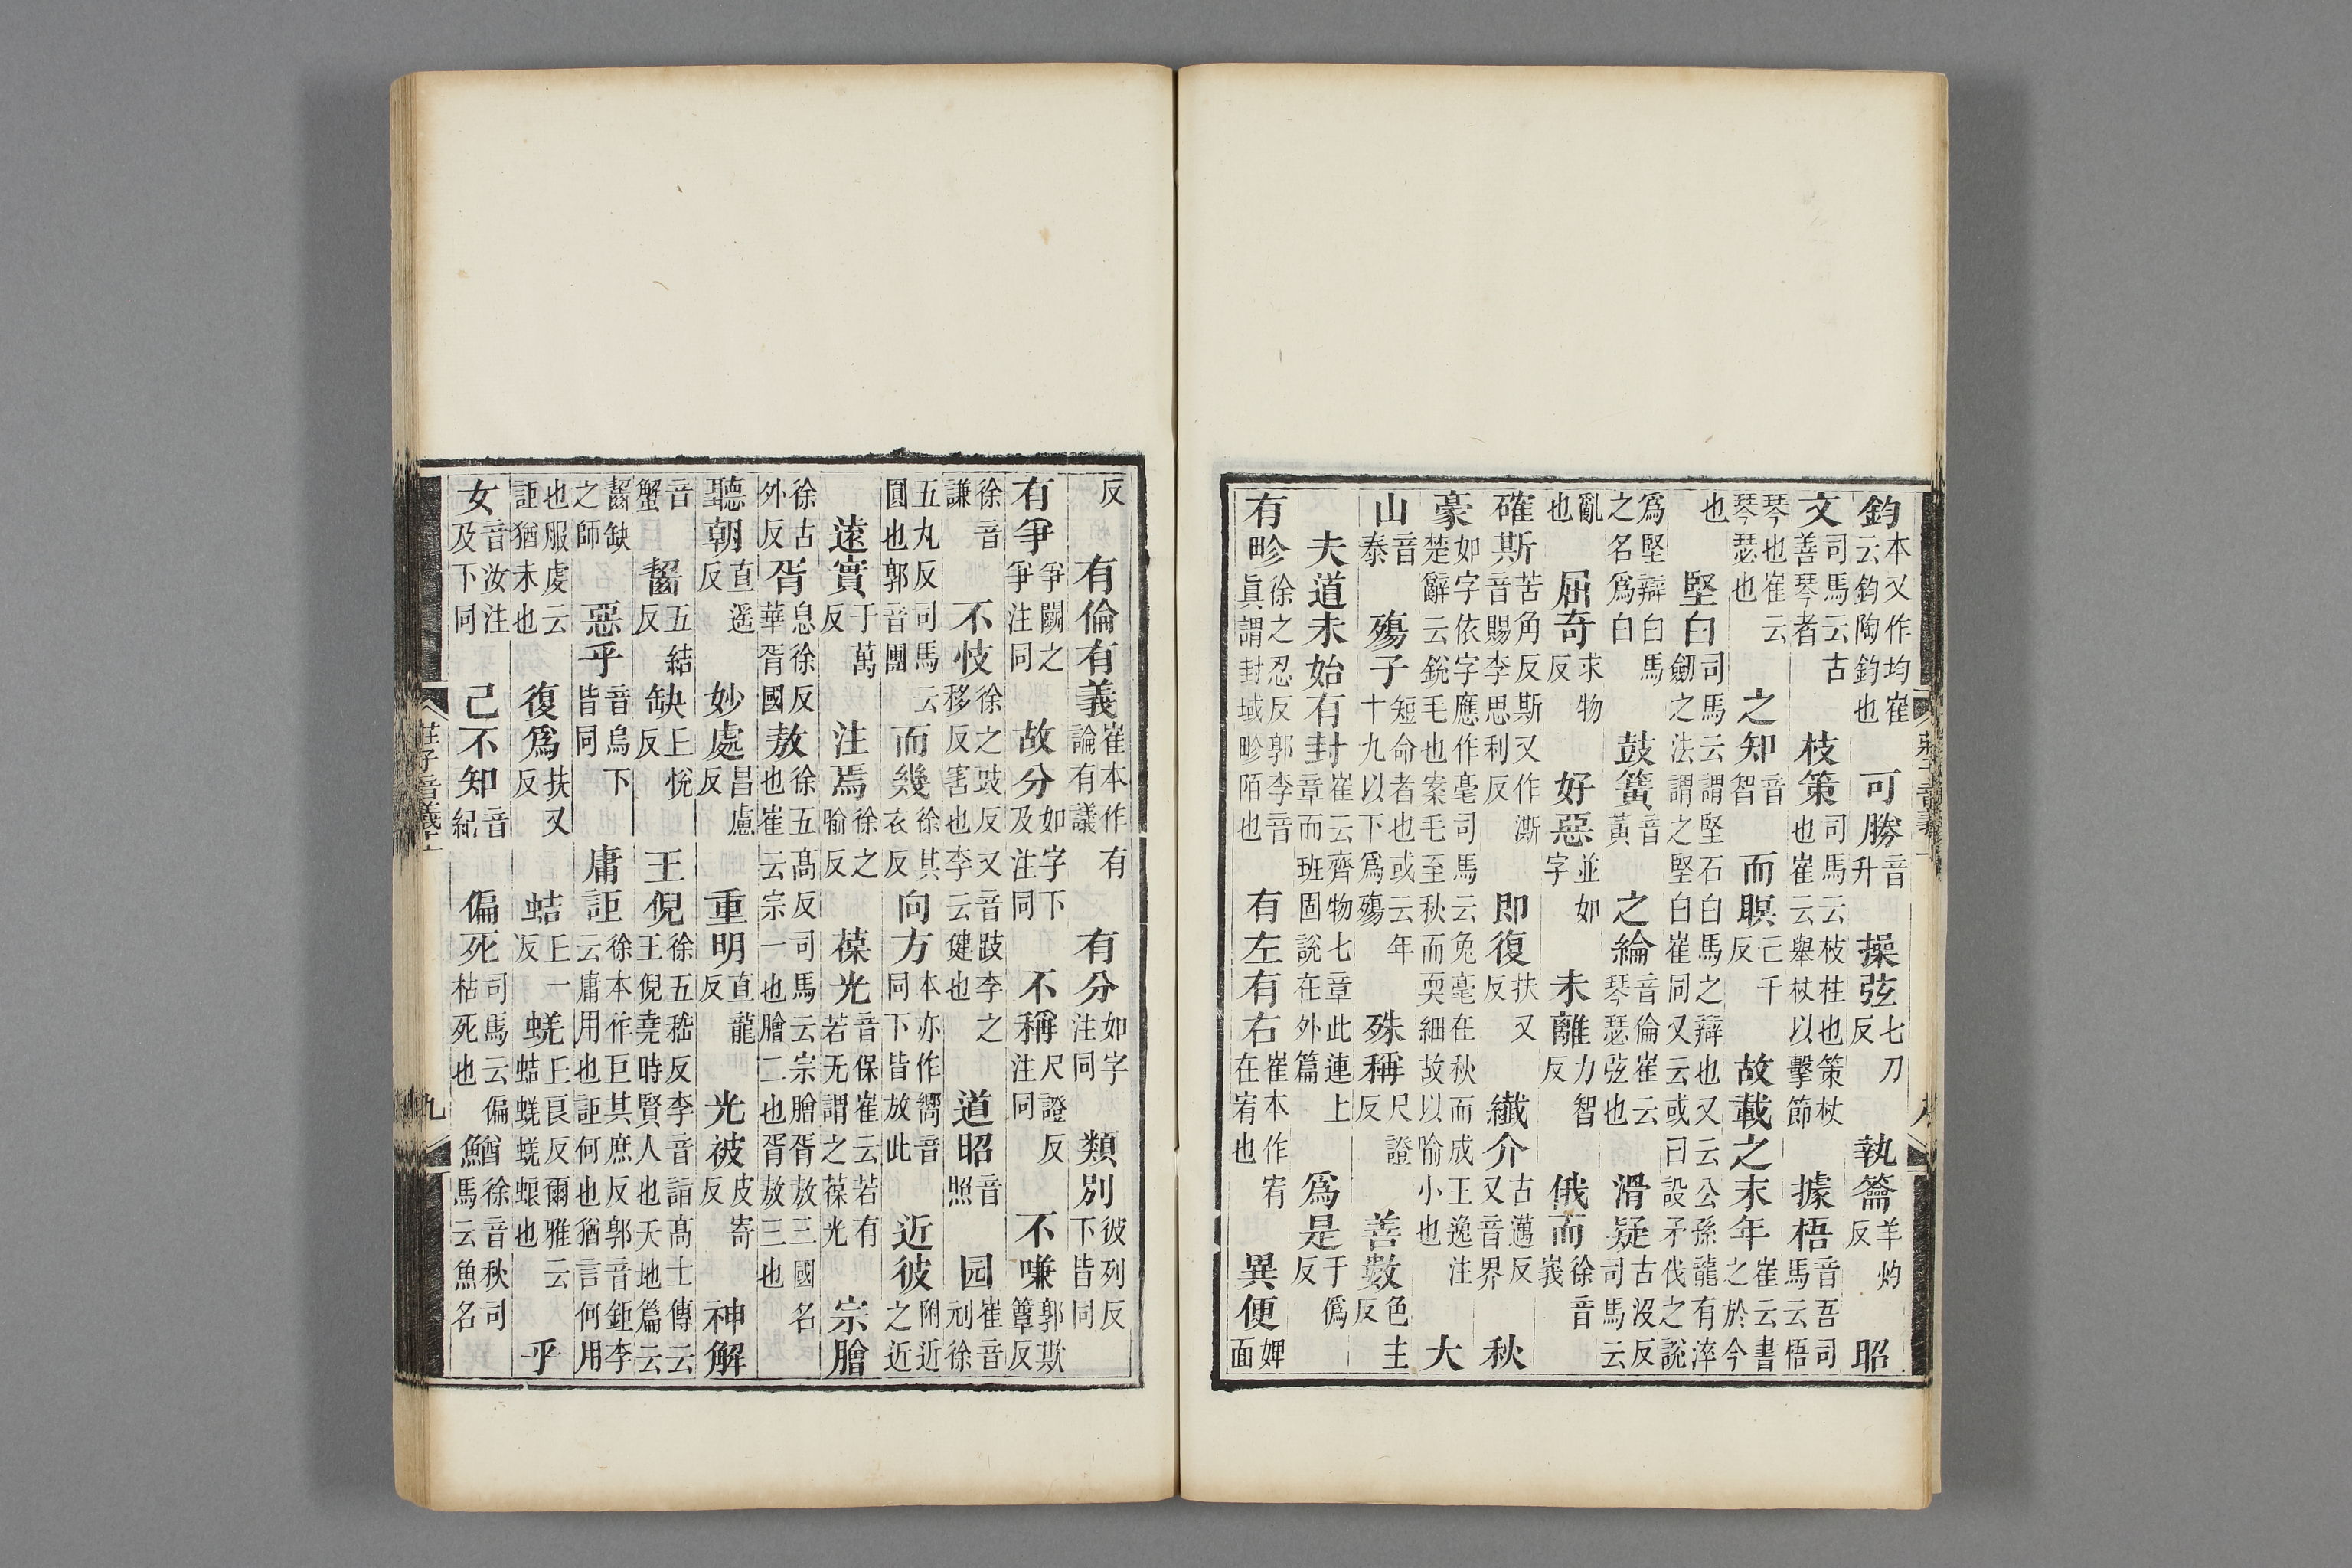 鈞本又作均崔云鈞陶鈞也可勝音升操弦七刀反執籥羊灼反昭
文司馬云古善琴者枝策司馬云枝柱也策杖也崔云舉杖以擊節據梧音吾司馬云梧
琴也崔云琴瑟也之知音智而瞑亡千反故載之末年崔云書之於今
也堅白司馬云謂堅石白馬之辯也又云公孫龍有淬劒之法謂之堅白崔同又云或曰設矛伐之說
爲堅辯白馬之名爲白鼓簧音黃之綸音倫崔云琴瑟弦也滑疑古沒反司馬云
亂也屈奇求物反好惡並如字未離力智反俄而徐音峩
確斯苦角反斯又作澌音賜李思利反即復扶又反纎介古邁反又音界秋
豪如字依字應作毫司馬云兔毫在秋而成王逸注楚辭云銳毛也案毛至秋而耎細故以喻小也大
山音泰殤子短命者也或云年十九以下爲殤殊稱尺證反善數色主反
夫道未始有封崔云齊物七章此連上章而班固說在外篇爲是于僞反
有畛徐之忍反郭李音眞謂封域畛陌也有左有右崔本作宥在宥也異便婢面
反有倫有義崔本作有論有議有分如字注同類別彼列反下皆同
有爭爭鬬之爭注同故分如字下及注同不稱尺證反注同不嗛郭欺簟反
徐音謙不忮徐之豉反又音跂李之移反害也李云健也道昭音照园崔音刓徐
五丸反司馬云圓也郭音團而幾徐其衣反向方本亦作嚮音同下皆放此近彼附近之近
遠實于萬反注焉徐之喻反葆光音保崔云若有若无謂之葆光宗膾
徐古外反胥息徐反華胥國敖徐五高反司馬云宗膾胥敖三國名也崔云宗一也膾二也胥敖三也
聽朝直遥反妙處昌慮反重明直龍反光被皮寄反神解
音蟹齧五結反缺丘悅反王倪徐五嵇反李音詣高士傳云王倪堯時賢人也天地篇云
齧缺之師惡乎音烏下皆同庸詎徐本作巨其庶反郭音鉅李云庸用也詎何也猶言何用
也服虔云詎猶未也復爲扶又反蛣丘一反蜣丘良反爾雅云蛣蜣蜣蜋也乎
女音汝注及下同己不知音紀偏死司馬云偏枯死也鰌徐音秋司馬云魚名
莊子音義上
九